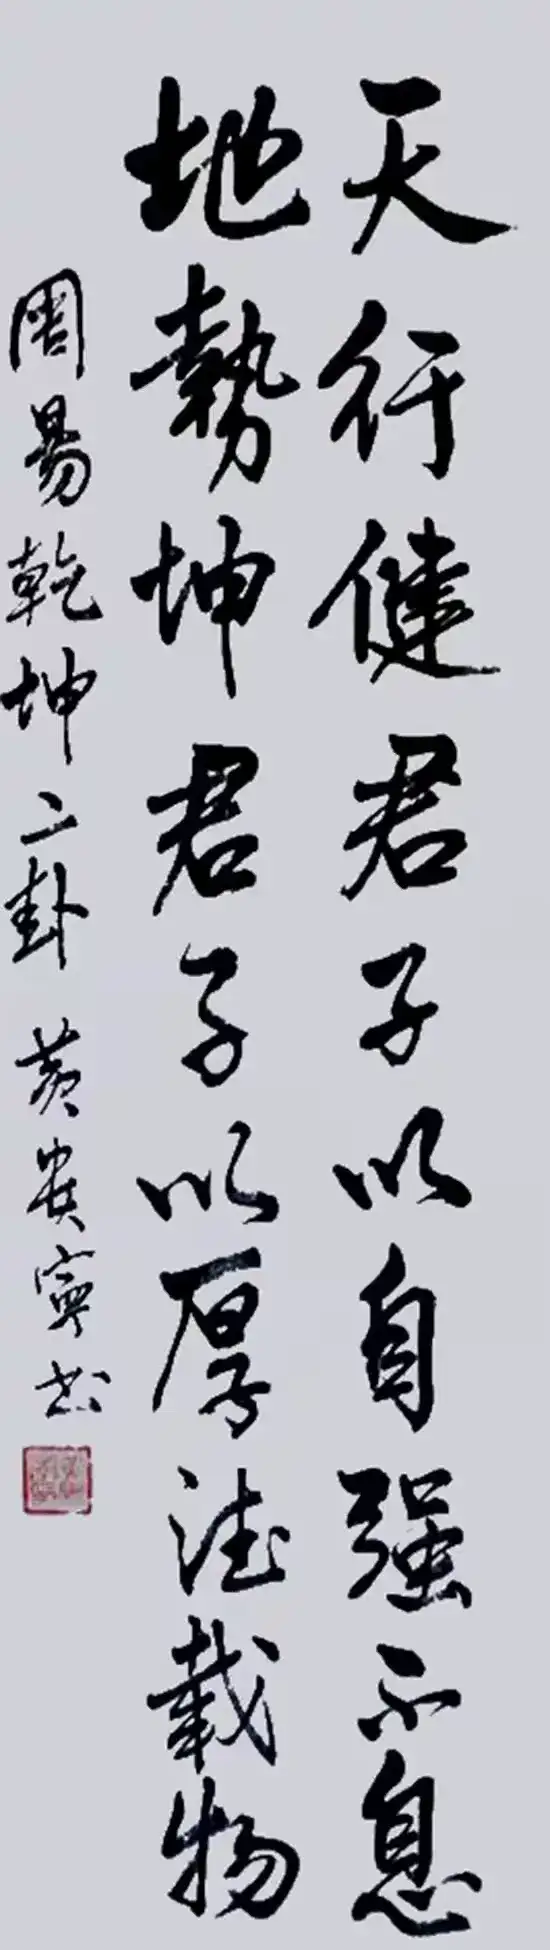 天行健君子以自强不息
地勢坤君子以厚德載物
周易乾坤二卦 黄貴寧书